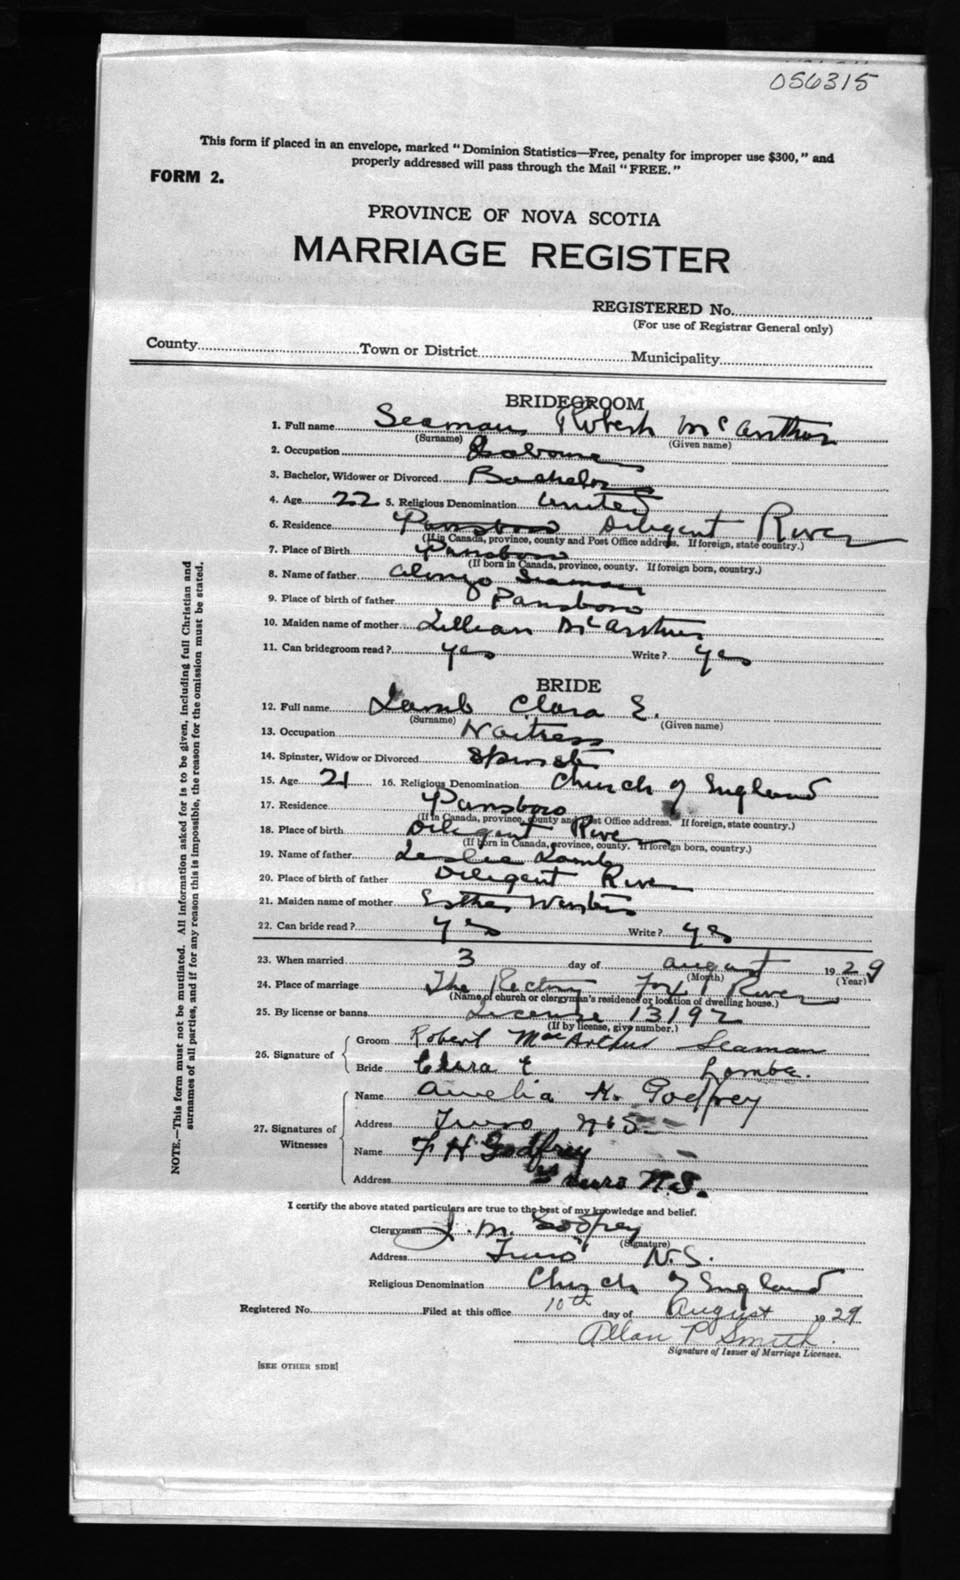 056315
This form if placed in an envelope, marked "Dominion Statistics—Free, penalty for improper use $300," and
properly addressed will pass through the Mail "FREE."
FORM 2.
PROVINCE OF NOVA SCOTIA
MARRIAGE REGISTER
REGISTERED No.
(For use of Registrar General only)
County Town or District Municipality
BRIDEGROOM
1. Full name Seaman, Robert McArthur
(Surname) (Given name)
2. Occupation Laborer
3. Bachelor, Widower or Divorced Bachelor
4. Age 22 5. Religious Denomination United
6. Residence Parrsboro Diligent River
(If in Canada, province, county and Post Office address. If foreign, state country.)
7. Place of Birth Parrsboro
(If born in Canada, province, county. If foreign born, country.)
8. Name of father Alonzo Seaman
9. Place of birth of father Parrsboro
10. Maiden name of mother Lillian McArthur
11. Can bridegroom read? yes Write? yes
BRIDE
12. Full name Lamb Clara E.
(Surname) (Given name)
13. Occupation Waitress
14. Spinster, Widow or Divorced Spinster
15. Age 21 16. Religious Denomination Church of England
17. Residence Parrsboro
(If in Canada, province, county and Post Office address. If foreign, state country.)
18. Place of birth Diligent River
(If born in Canada, province, county. If foreign born, country.)
19. Name of father Leslie Lamb
20. Place of birth of father Diligent River
21. Maiden name of mother Esther
22. Can bride read? yes Write? yes
23. When married 3 day of August 1929
(Month) (Year)
24. Place of marriage The Rectory Fox River
(Name of church or clergyman's residence or location of dwelling house.)
25. By license or banns License 13192
(If by license, give number.)
26. Signature of
Groom Robert MacArthur Seaman
Bride Clara E Lambe.
27. Signatures of Witnesses
Name Amelia K. Godfrey
Address Truro N.S.
Name F H Godfrey
Address Truro N.S.
I certify the above stated particulars are true to the best of my knowledge and belief.
Clergyman J. M. Godfrey
(Signature)
Address Truro N.S.
Religious Denomination Church of England
Registered No. Filed at this office 10th day of August 1929
Allan P Smith.
Signature of Issuer of Marriage Licenses.
[SEE OTHER SIDE]
NOTE.—This form must not be mutilated. All information asked for is to be given, including full Christian and
surnames of all parties, and if for any reason this is impossible, the reason for the omission must be stated.